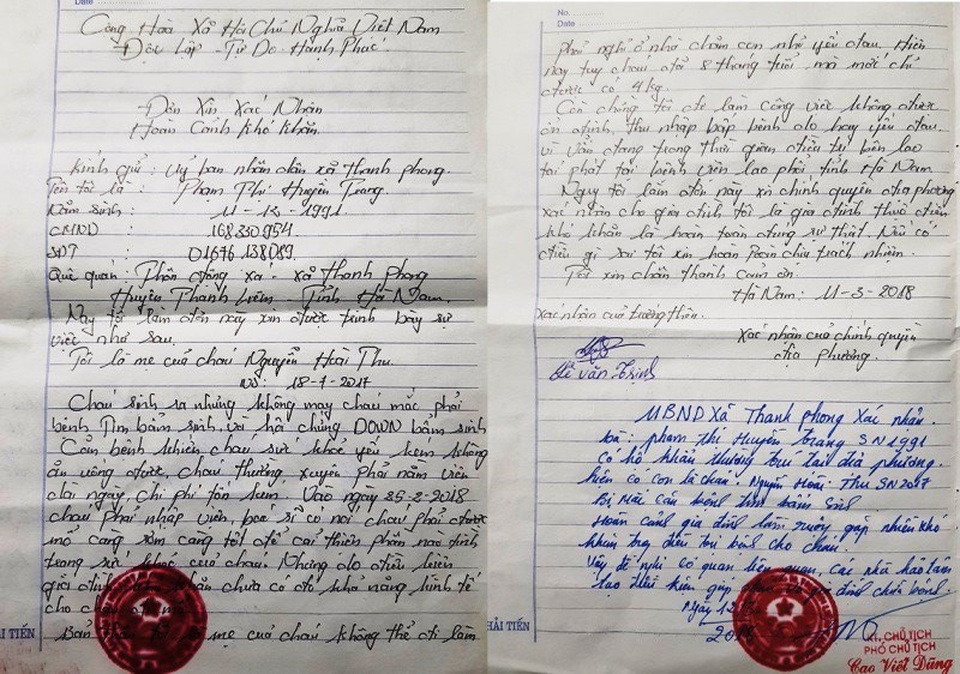 Date
Cộng Hoà Xã Hội Chủ Nghĩa Việt Nam
Độc Lập - Tự Do - Hạnh Phúc
Đơn Xin Xác Nhận
Hoàn Cảnh Khó Khăn.
Kính gửi: Uỷ ban nhân dân xã Thanh phong.
Tên tôi là : Phạm Thị Huyền Trang.
Năm sinh : 11-12-1991.
CMND : 168330954.
SĐT : 01676 138089.
Quê quán: Thôn động xá, xã Thanh Phong
Huyện Thanh Liêm - Tỉnh Hà Nam.
Nay tôi làm đơn này xin được trình bày sự
việc như sau.
Tôi là mẹ của cháu Nguyễn Hoài Thu.
NS: 18-7-2017
Cháu sinh ra nhưng không may cháu mắc phải
bệnh Tim bẩm sinh, và hội chứng DOWN bẩm sinh
Căn bệnh khiến cháu sức khoẻ yếu kém không
ăn uống được, cháu thường xuyên phải nằm viện
dài ngày, chi phí tốn kém. Vào ngày 25-2-2018
cháu phải nhập viện, bác sĩ có nói cháu phải được
mổ càng sớm càng tốt để cải thiện phần nào tình
trạng sức khoẻ của cháu. Nhưng do điều kiện
gia đình khó khăn chưa có đủ khả năng kinh tế
cho cháu
Bản thân tôi là mẹ của cháu không thể đi làm
HẢI TIẾN
No.
Date
Phải nghỉ ở nhà chăm con nhỏ yếu đau. Hiện
nay tuy cháu đã 8 tháng tuổi mà mới chỉ
được có 4kg.
Còn chồng tôi đi làm công việc không được
ổn định, thu nhập bấp bênh do hay yếu đau.
vì vẫn đang trong thời gian điều trị bên lao
tái phát tại bệnh viện lao phổi tỉnh Hà Nam
Nay tôi làm đơn này xin chính quyền địa phương
xác nhận cho gia đình tôi là gia đình thuộc diện
khó khăn là hoàn toàn đúng sự thật. Nếu có
điều gì sai tôi xin hoàn toàn chịu trách nhiệm.
Tôi xin chân thành cảm ơn.
Hà Nam: 11-3-2018
Xác nhận của trưởng thôn.
Xác nhận của chính quyền
địa phương.
Lê Văn Trịnh
UBND Xã Thanh phong xác nhận.
Bà: phạm thị Huyền trang SN1991
có hộ khẩu thường trú tại địa phương.
hiện có con là cháu. Nguyễn Hoài Thu SN2017
Bị mắc căn bệnh tim bẩm sinh
Hoàn cảnh gia đình làm ruộng gặp nhiều khó
khăn trong điều trị bệnh cho cháu.
Vậy đề nghị cơ quan liên quan, các nhà hảo tâm
tạo điều kiện giúp gia đình chữa bệnh.
Ngày 12
HẢI TIẾN
KT. CHỦ TỊCH
PHÓ CHỦ TỊCH
Cao Việt Dũng